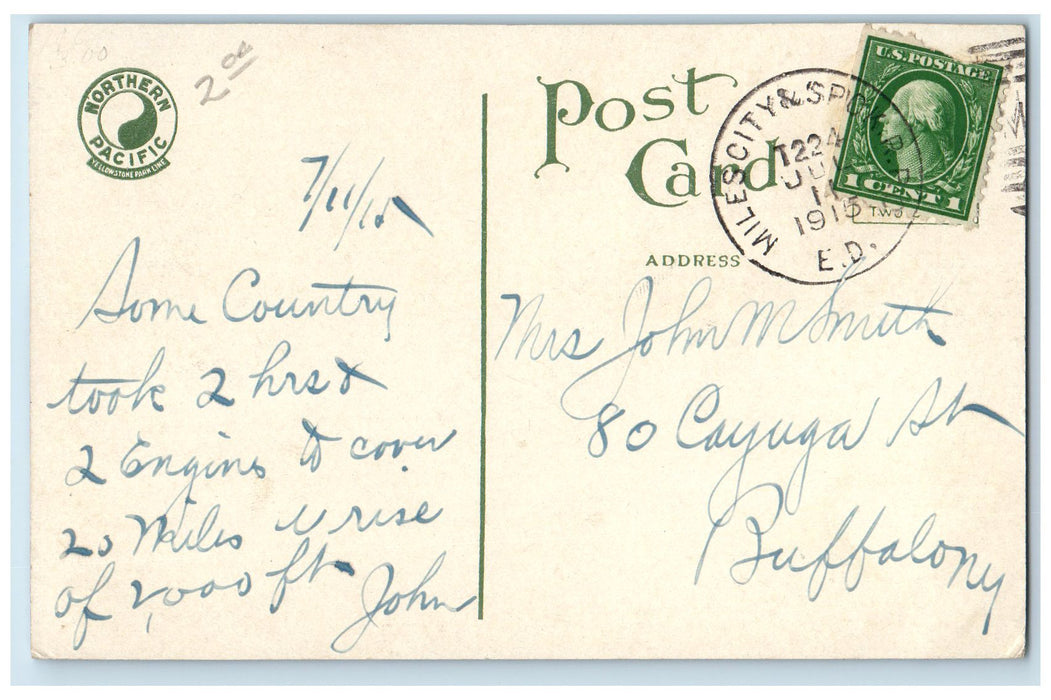 2.00
NORTHERN
PACIFIC
YELLOWSTONE PARK LINE
7/11/15
Some Country
took 2 hrs &
2 Engines to cover
20 Miles & rise
of 2,000 ft.
John
Post
Card
ADDRESS
U.S. POSTAGE
1 CENT 1
MILES CITY & SPOK.
T224
JUL
1915
E.D.
Mrs John M Smith
80 Cayuga St
Buffalo ny